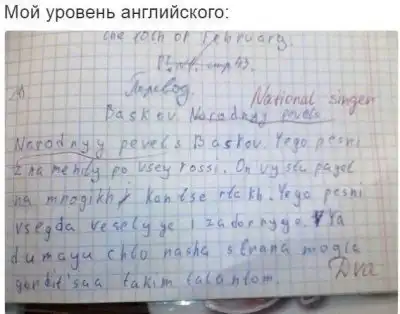 Мой уровень английского:
the 10th of February.
стр 43.
Перевод.
National singer
Baskov Narodnyy pevets
Narodnyy pevets Baskov. Yego pesni
znamenity po vsey rossi. On vystupayet
na mnogikh kontsertakh. Yego pesni
vsegda veselyye i zadornyye. Ya
dumayu chto nasha strana mogla
gordit'saa takim talantom.
Dva